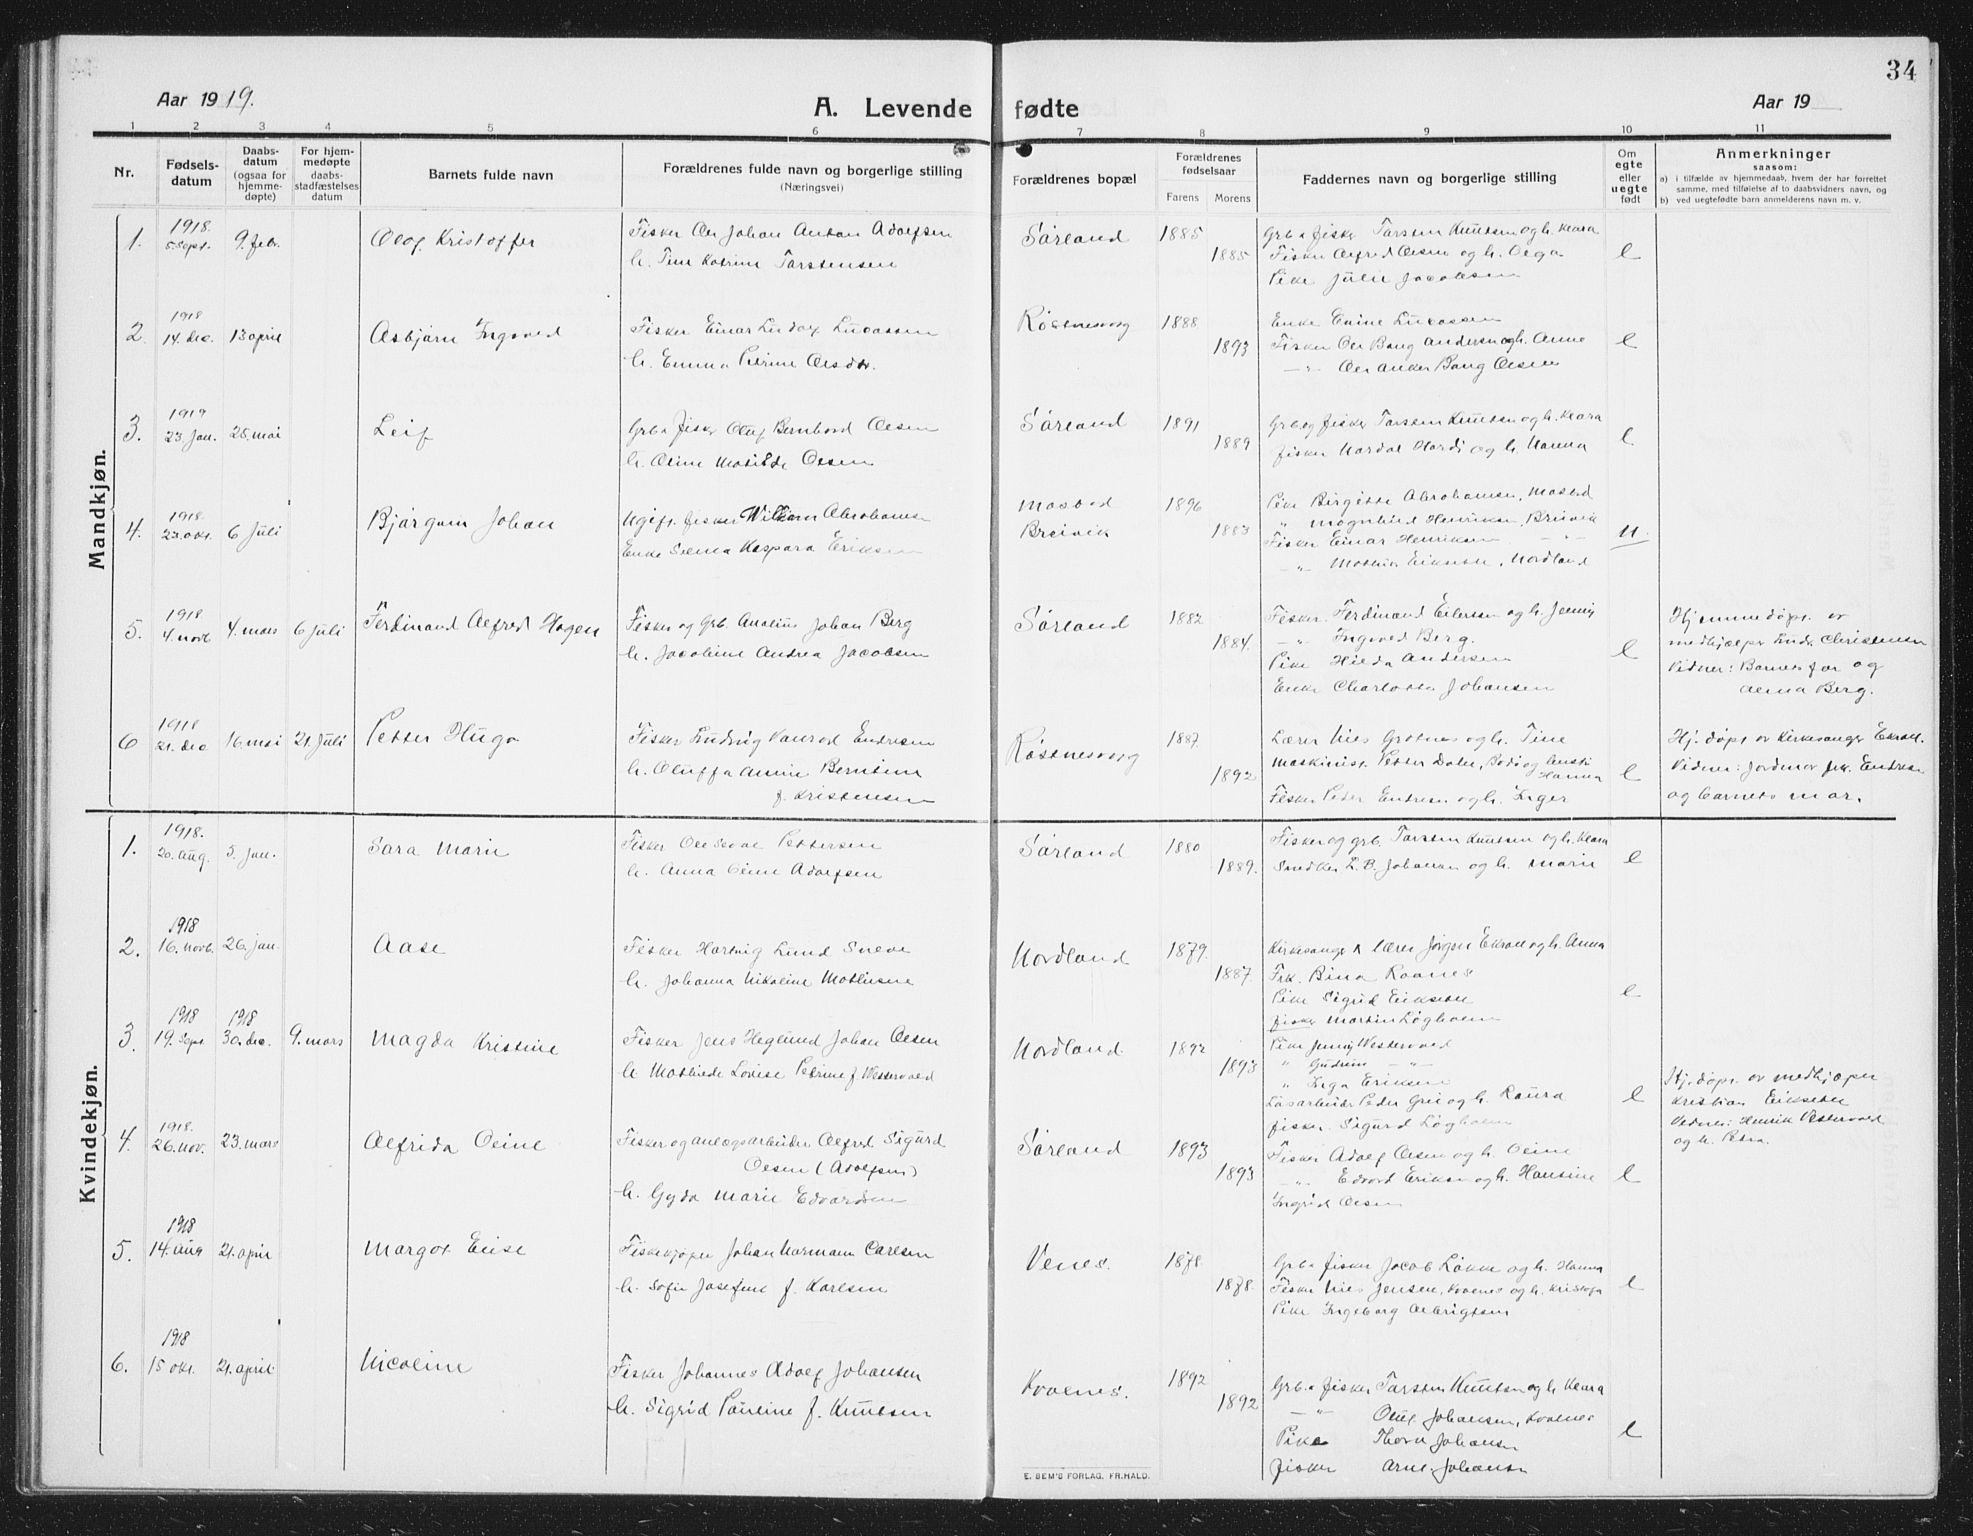 34
Aar 1919.
A. Levende fødte
Aar 19
1 2 3 4 5 6 7 8 9 10 11
Nr.
Fødsels-
datum
Daabs-
datum
(ogsaa for
hjemme-
døpte)
For hjem-
medøpte
daabs-
stadfæstelses
datum
Barnets fulde navn
Forældrenes fulde navn og borgerlige stilling
(Næringsvei)
Forældrenes bopæl
Forældrenes
fødselsaar
Farens Morens
Faddernes navn og borgerlige stilling
Om
egte
eller
uegte
født
Anmerkninger
saasom:
a) i tilfælde av hjemmedaab, hvem der har forrettet
samme, med tilføielse af to daabsvidners navn, og
b) ved uegtefødte barn anmelderens navn m. v.
Mandkjøn.
1. 1918. 5 sept. 9. febr. Olaf Kristoffer
Fisker Ole Johan Anton Adolfsen
h. Tine Katrine Torstensen
Sørland 1885 1885
Grb. a fisker Torsten Knutsen og h. Klara
Fisker Alfred Olsen og h. Olga
Pike Julie Jacobsen
e
2. 1918 14. dec. 13 april Asbjørn Ingvald
Fisker Einar Lucassen
h. Emma Petrine Olsdtr.
Røstnesvåg 1888 1893
Enke Lucassen
Fisker Ole Bang Andersen og h. Anne
—"— Ole Anker Bang Olsen
e
3. 1919 23. Jan. 25. mai Leif
Grb. a fisker Oluf Bernhard Olsen
h. Oline Matilde Olsen
Sørland 1891 1889
Grb. og fisker Torsten Knutsen og h. Klara
fisker Hardi og h. Hanna
e
4. 1918. 23. okt. 6 Juli Bjørgum Johan
Ugift fisker William Abrahamsen
Enke Selma Kaspara Eriksen
Mostad
Breivik
1896 1883
Pike Birgitte Abrahamsen, Mostad
" Magnhild Henriksen, Breivik
Fisker Einar Henriksen —"—
—"— Mathias Eiksette, Nordland
U.
5. 1918. 4. novb 4. mars 6 Juli Ferdinand Alfred Hagen
Fisker og Grb. Analius Johan Berg
h. Jacobine Andrea Jacobsen
Sørland 1882 1884.
Fisker Ferdinand Eilertsen og h. Jenny
—"— Ingvald Berg.
Pike Hilda Andersen
Enke Charlotte Johansen
e
Hjemmedøpt av
medhjælper Christensen
Vidner: Barnets far og
Alma Berg.
6 1918 21. dec 16. mai 21. Juli Petter Hugo
Fisker Ludvig Konrad Endresen
h. Oluffa Amine Berntine
f. Kristensen
Røstnesvåg 1887 1892
Lærer Nils Grotnes og h. Tine
Maskinist Petter Dalen, Bodø og
Hanna
Fisker Peder Endresen og h. Inger
e
Hj. døpt av Kirkesanger Ekroll.
Vidner: Jordmor frk. Endresen
og barnets mor.
Kvindekjøn.
1. 1918. 20. aug. 5. jan. Sara Marie
Fisker Ole Sevat Pettersen
h. Anna Oline Adolfsen
Sørland 1880 1889.
Fisker og grb. Torsten Knutsen og h. Klara
Snedker L. B. Johansen og h. Marie
e
2. 1918 16. novb. 26. jan. Aase
Fisker Hartvig Lund
h. Johanna Nikoline Mathisene
Nordland 1879. 1887.
Kirkesanger & lærer Jørgen Ekroll og h. Anna
Frk. Bina Raanes
Pike Sigrid Eiksette
fisker Martin Løgholm
e
3. 1918 19. Sept. 1918 30. dec. 9. mars Magda Kristine
Fisker Jens Heglund Johan Olsen
h. Mathilde Lovise Petrine f. Vestervold
Nordland 1892 1893
Pike Jenny Vestervold
" Gudrun —"—
" Inga Eriksen
Løsarbeider Peder og h. Laura
fisker Sigurd Løgholm
e
Hj. døpt av medhjælper
Kristian Eiksette
Vidner: Henrik Vestervold
og h. Petra.
4. 1918. 26. nov. 23. mars Alfrida Oline
Fisker og anlægsarbeider Alfred Sigurd
Olsen (Adolfsen)
h. Gyda Marie Edvardsen
Sørland 1893 1893
Fisker Adolf Olsen og h. Oline
—"— Edvard Eriksen og h. Hansine
Ingrid Olsen
e
5. 1918 14. aug 21. april Margot Elise
Fiskekjøper Johan Normann Carlsen
h. Sofie Josefine f. Karlsen
Venes. 1878 1878.
Grb. a fisker Jacob Løkke og h. Hanna
Fisker Nils Jensen, Kvalnes og h. Kristofa
Pike Ingeborg Albrigtsen
e
6. 1918 15 okt. 21. april Nicoline
Fisker Johannes Adolf Johansen
h. Sigrid Pauline f. Knutsen
Kvalnes. 1892 1892
Grb. a fisker Torsten Knutsen og h. Klara
—"— Oluf Johansen, Kvalnes
Pike Thora Johansen
fisker Arne Johansen
e
E. SEM'S FORLAG, FR.HALD.